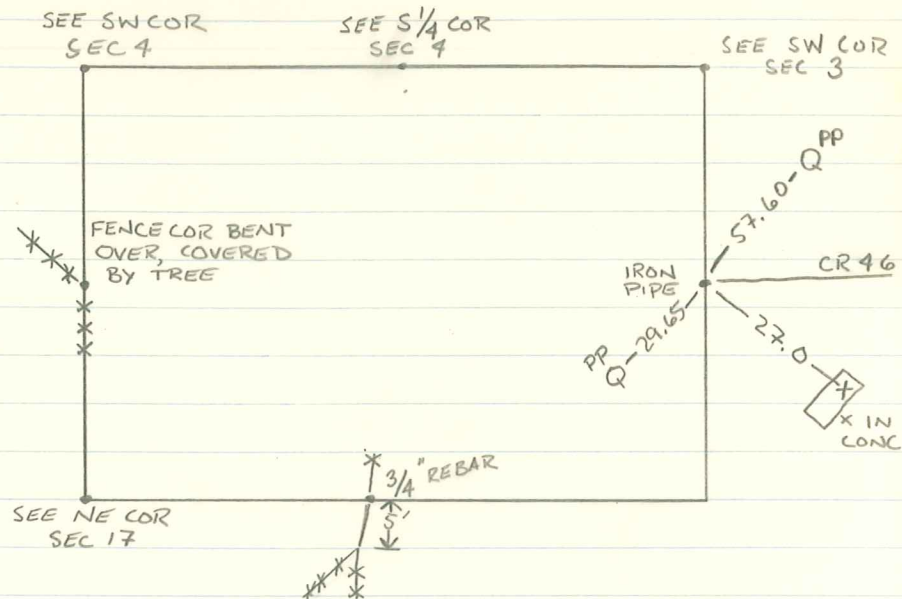 SEE SW COR
SEC 4
SEE S 1/4 COR
SEC 4
SEE SW COR
SEC 3
PP
57.60
FENCE COR BENT
OVER, COVERED
BY TREE
IRON
PIPE
CR 46
29.65
27.0
PP
X IN
CONC
3/4" REBAR
5'
SEE NE COR
SEC 17